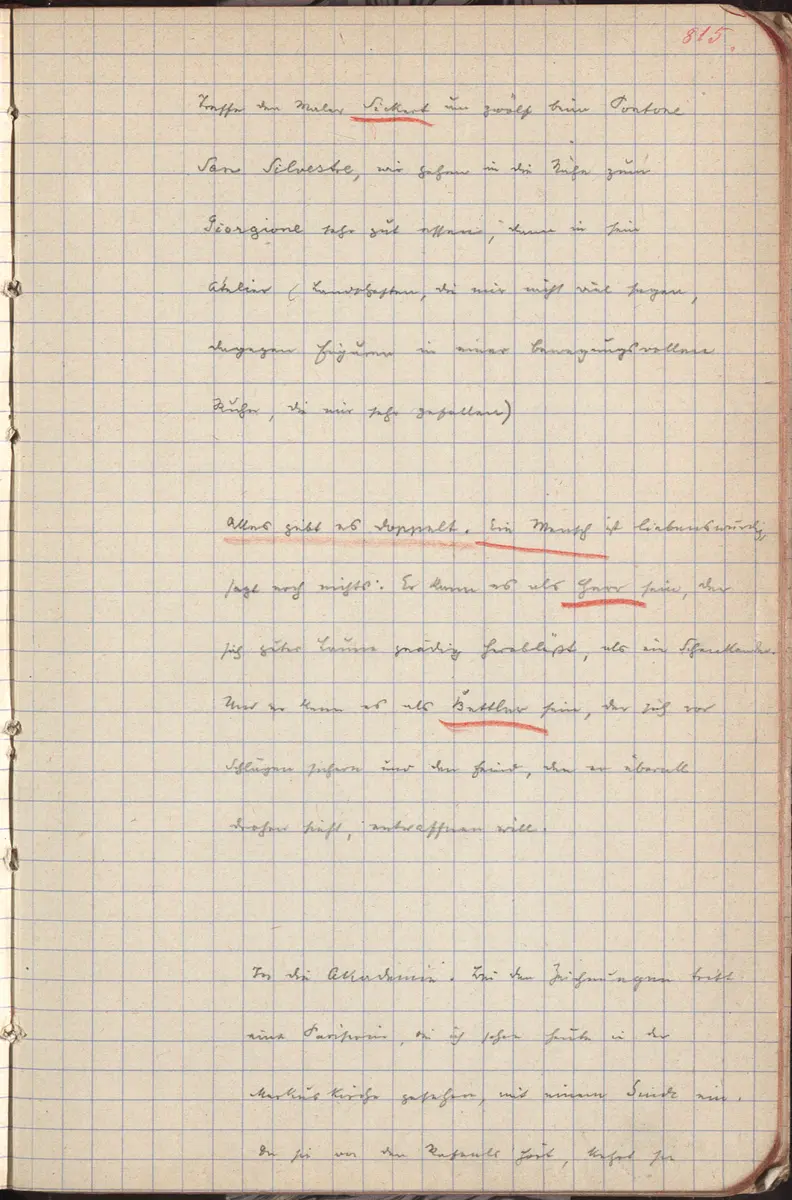 815.
Treffe den Maler Sickert um zwölf beim Pontone
San Silvestre, wir gehen in die Nähe zum
Giorgione sehr gut essen, dann in sein
Atelier (Landschaften, die mir nicht viel sagen,
dagegen Figuren in einer bewegungsvollen
Ruhe, die mir sehr gefallen)
Alles gibt es doppelt. Ein Mensch ist liebenswürdig,
sagt noch nichts. Er kann es als Herr sein, der
sich guter Laune gnädig herabläßt, als ein Schenkender.
Und er kann es als Bettler sein, der sich vor
Schlägen sichern und den Feind, den er überall
drohen sieht, entwaffnen will.
In die Akademie. Bei den Zeichnungen tritt
eine Pariserin, die ich schon heute in der
Markuskirche gesehen, mit einem ein.
Da sie von den Rafaels hört, kehrt sie